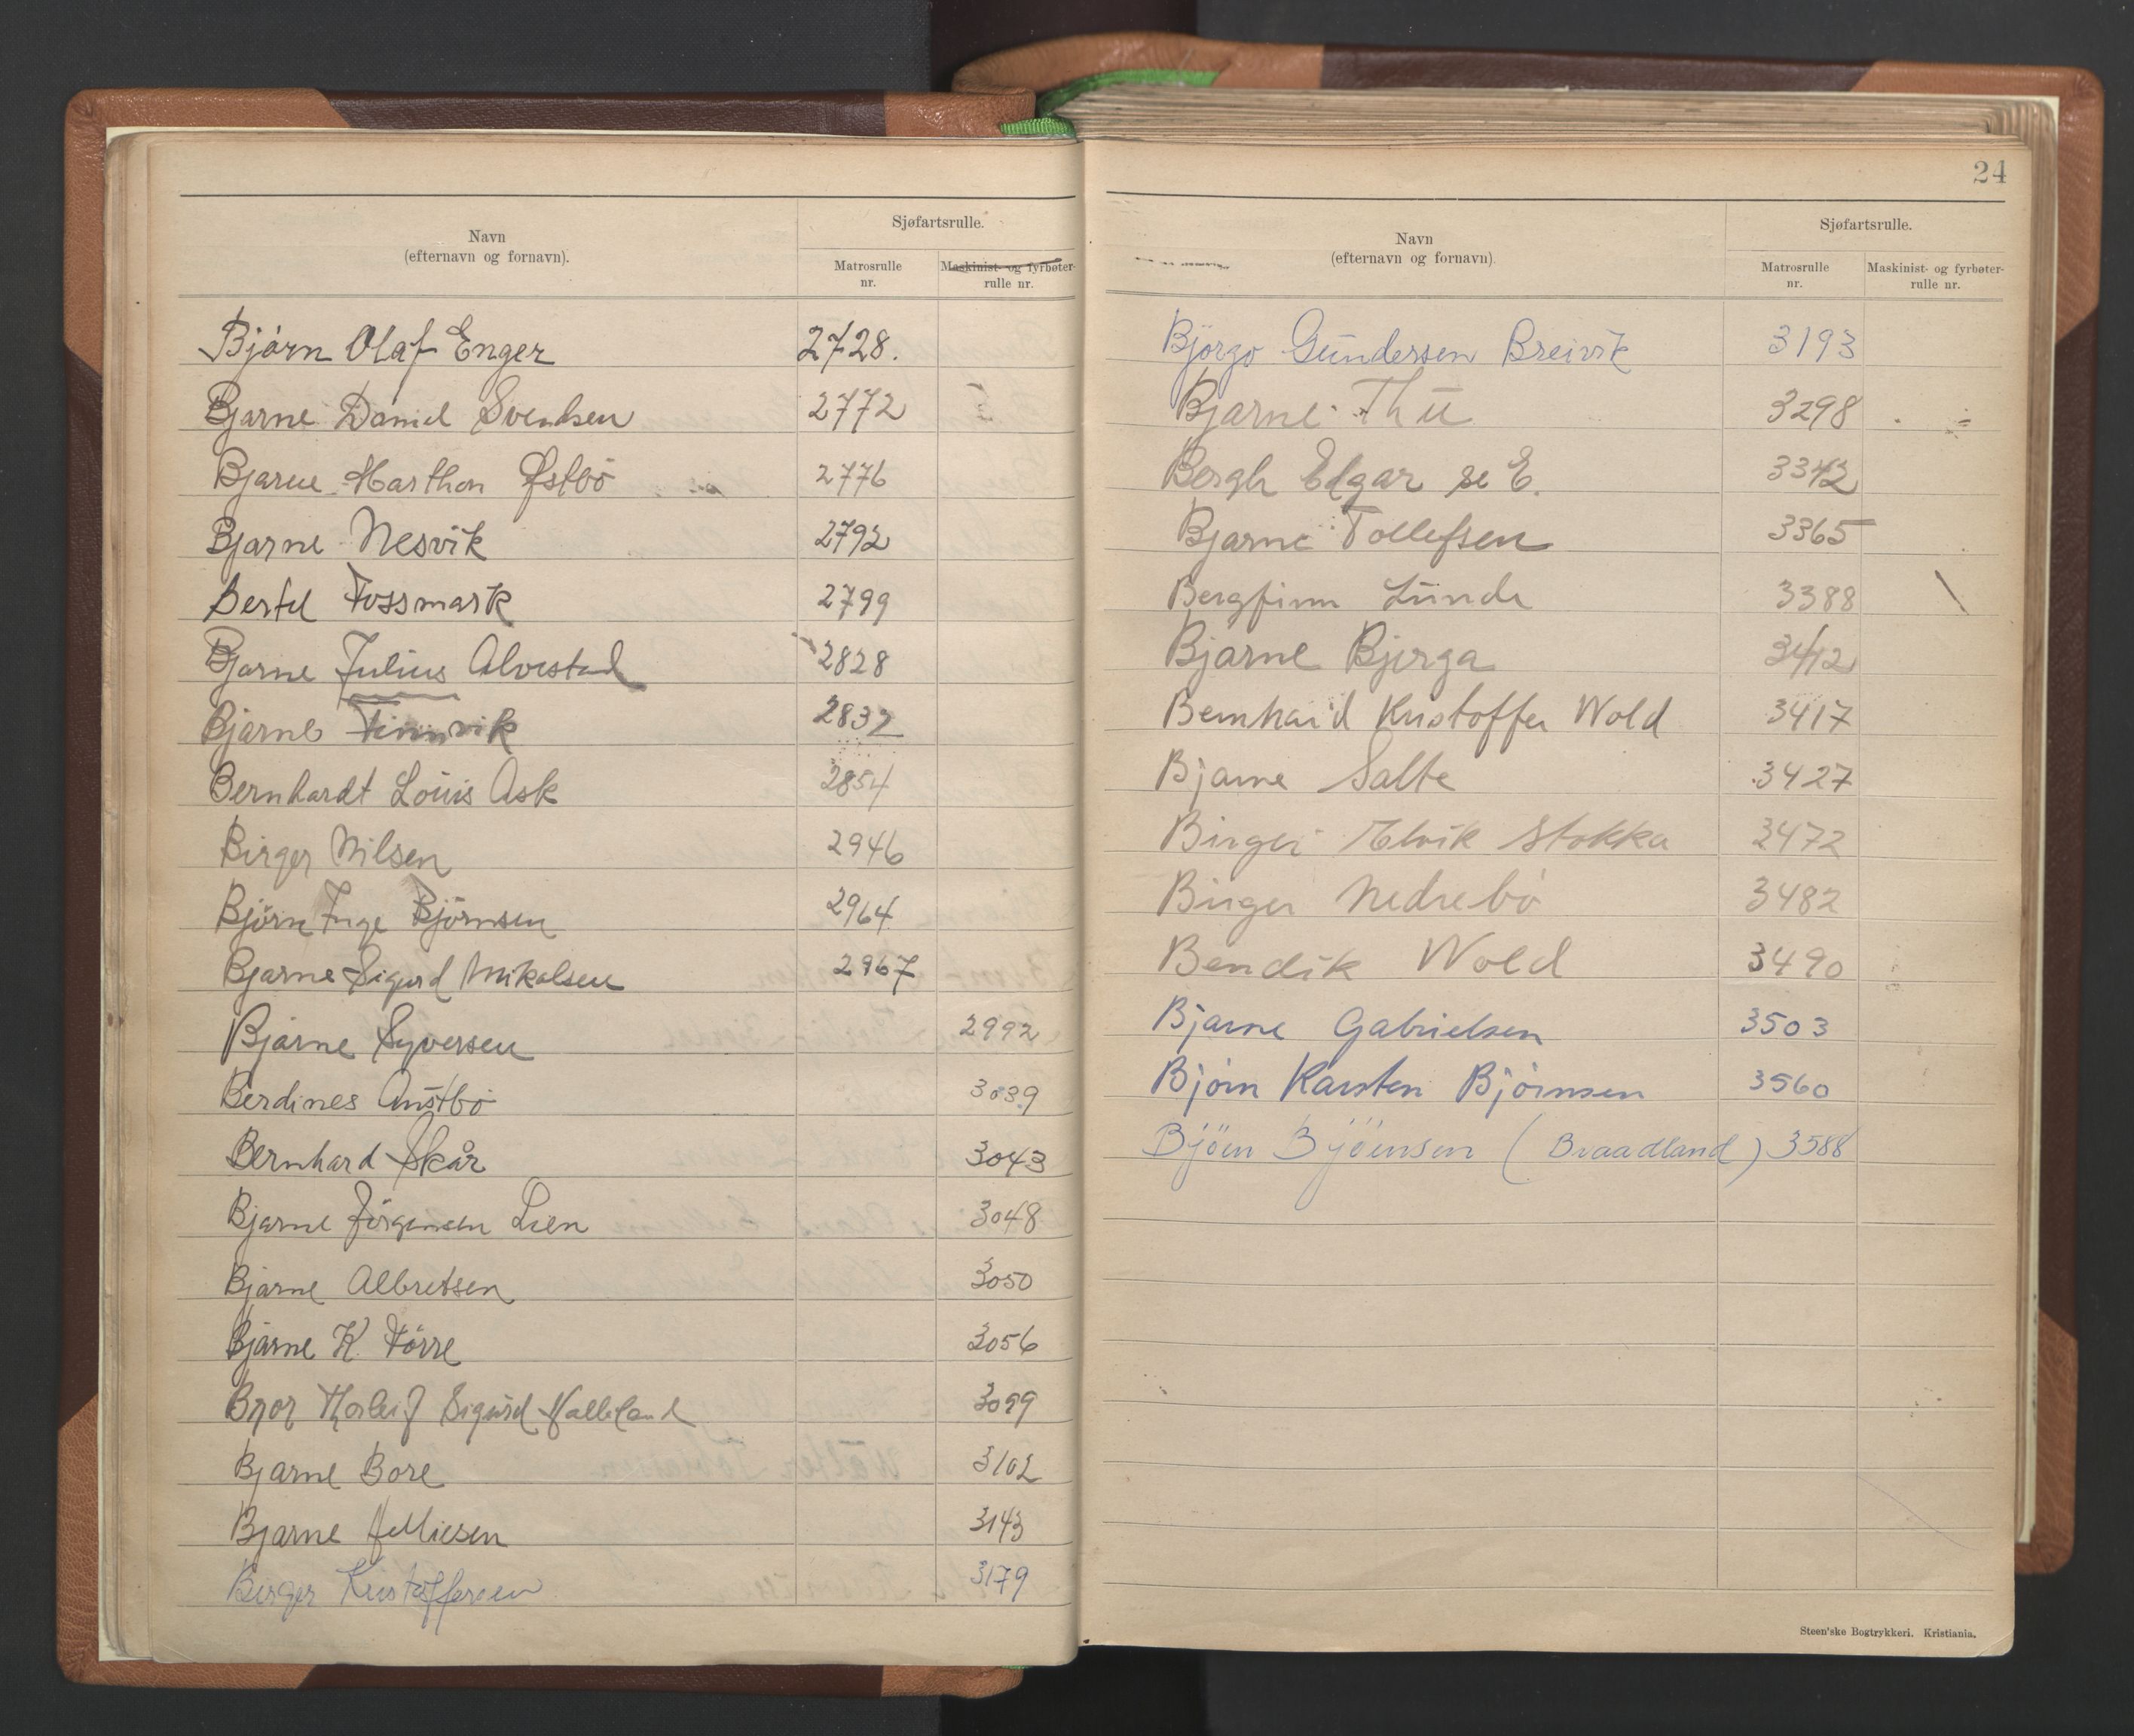 Navn
(efternavn og fornavn).
Sjøfartsrulle.
Matrosrulle
nr.
Maskinist- og fyrbøter-
rulle nr.
Bjørn Olaf Enger 2728.
Bjarne Daniel Svendsen 2772
Bjarne Marthon Østbö 2776
Bjarne Nesvik 2792
Bertel Fossmark 2799
Bjarne Julius Alvestad 2828
Bjarne Finnvik 2832
Bernhardt Louis Ask 2854
Birger Nilsen 2946
Bjørn Inge Bjørnsen 2964
Bjarne Sigurd Mikalsen 2967
Bjarne Syversen 2992
Berdines Austbö 3039
Bernhard Skår 3043
Bjarne Jörgensen Lien 3048
Bjarne Albretsen 3050
Bjarne K. Förre 3056
Bror Thorleif Sigurd 3099
Bjarne Bore 3102
Bjarne 3143
Birger Kristoffersen 3179
24
Navn
(efternavn og fornavn).
Sjøfartsrulle.
Matrosrulle
nr.
Maskinist- og fyrbøter-
rulle nr.
Björgo Gundersen Breivik 3193
Bjarne Thu 3298
Bergh Edgar se E. 3342
Bjarne Tollefsen 3365
Bergfinn Lunde 3388
Bjarne Bjerga 3412
Bernhard Kristoffer Wold 3417
Bjarne Salte 3427
Birger Elvik Stokka 3472
Birger Nedrebö 3482
Bendik Wold 3490
Bjarne Gabrielsen 3503
Bjørn Karsten Bjørnsen 3560
Björn Björnsen (Braadland) 3588
Steen'ske Bogtrykkeri. Kristiania.